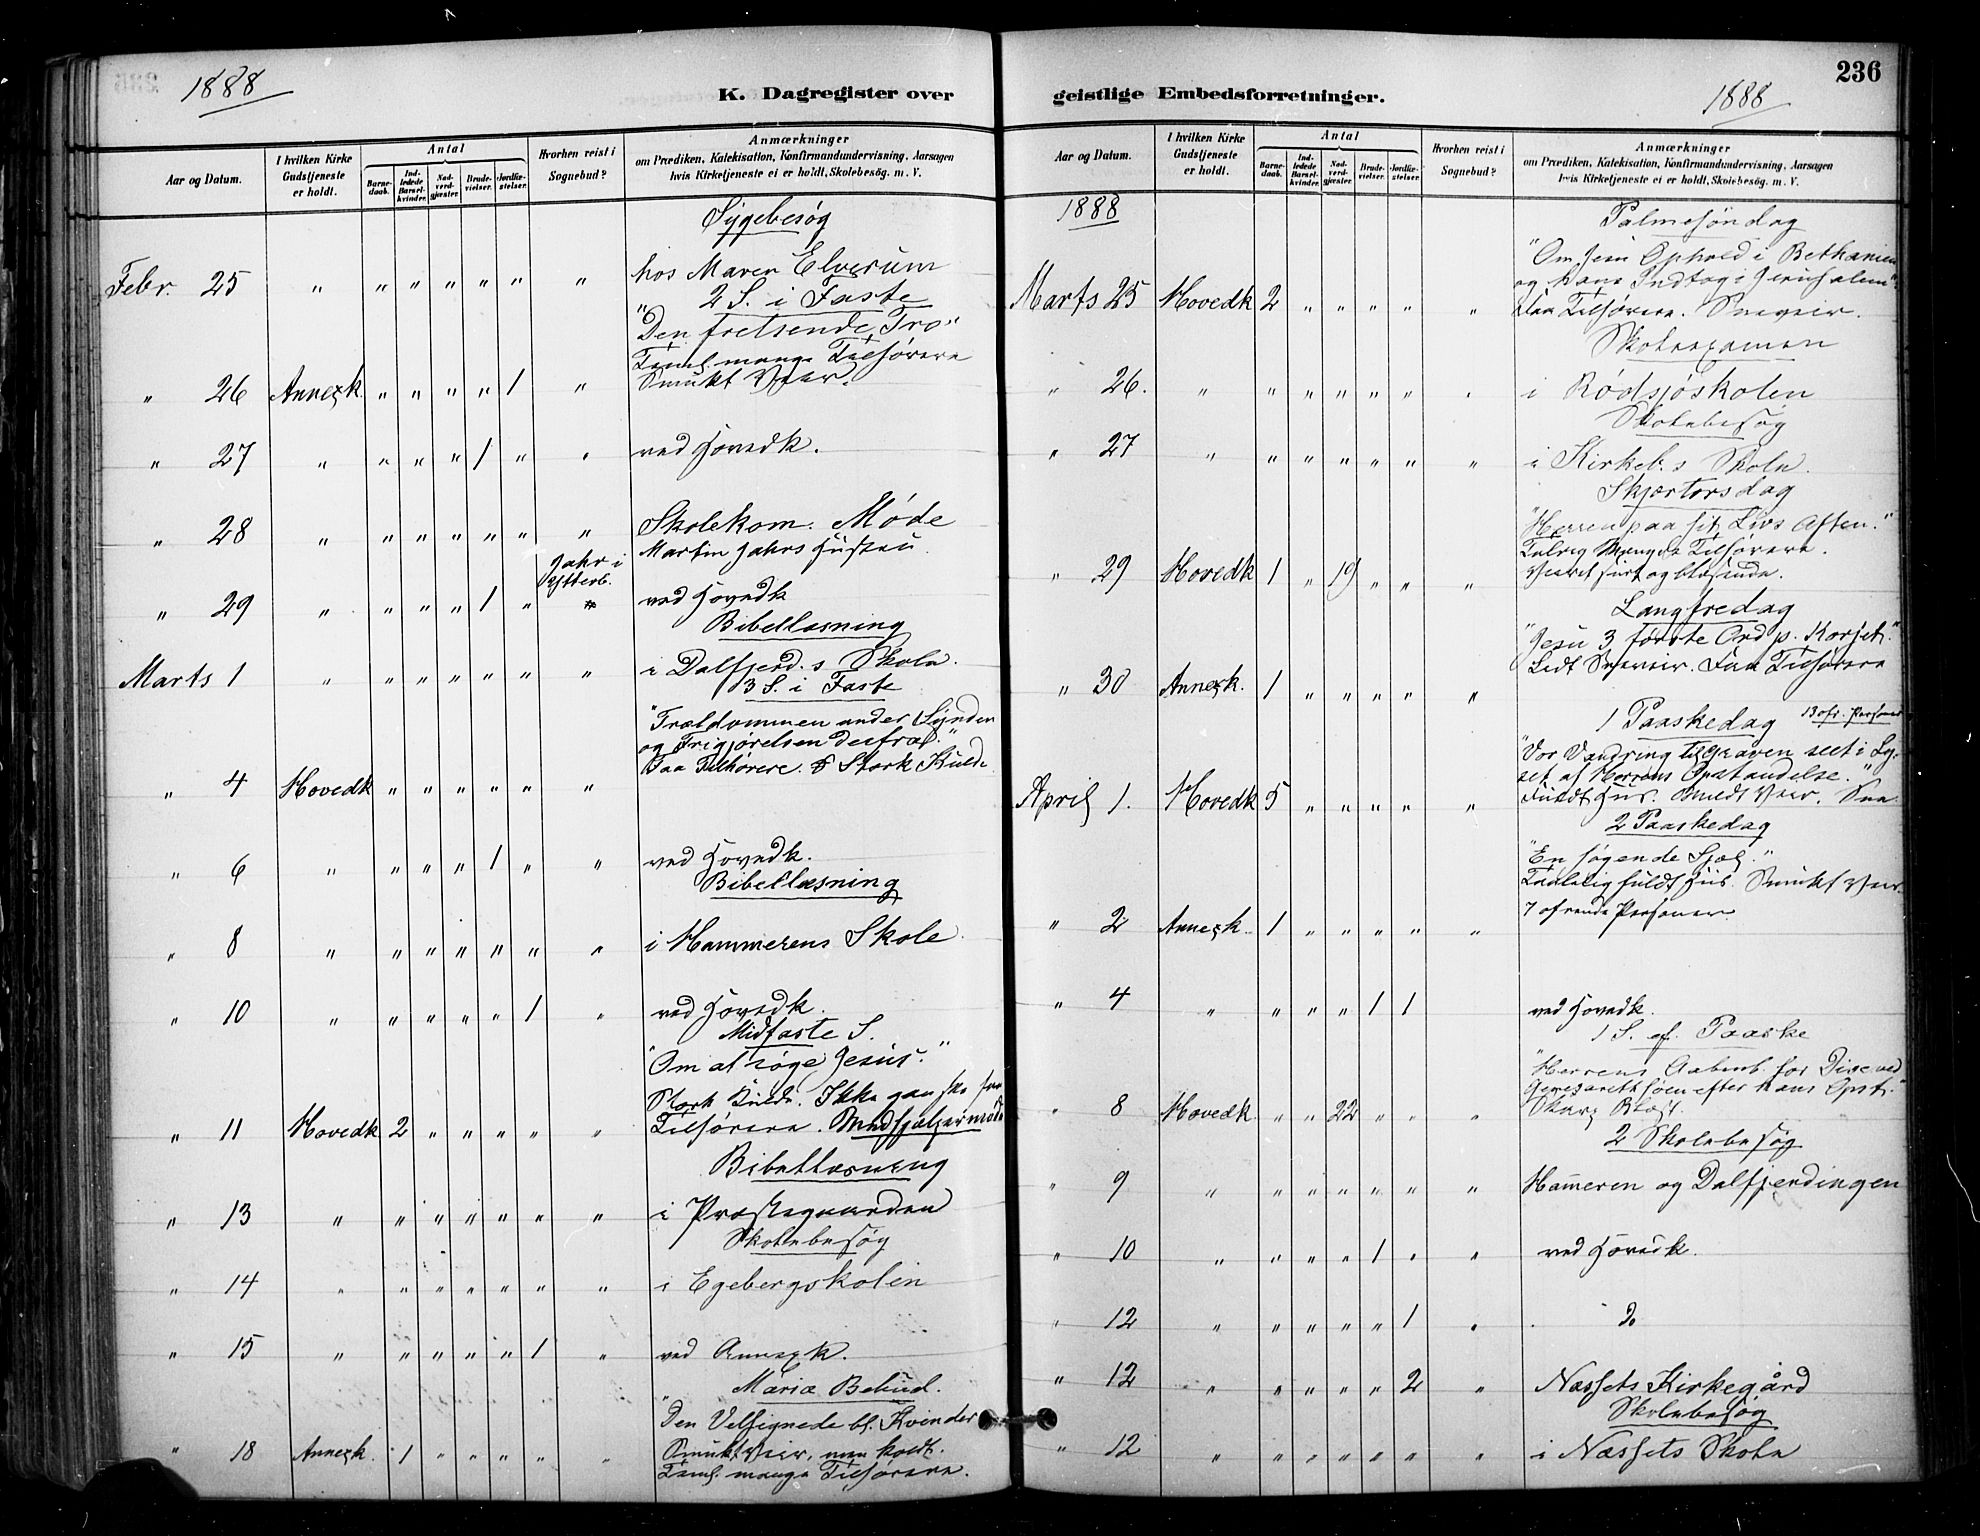 1888
K. Dagregister over
Aar og Datum.
I hvilken Kirke Gudstjeneste er holdt.
Antal
Barnedaab.
Indledede Barselkvinder.
Nadverdgjester.
Brudevielser.
Jordfæstelser.
Hvorhen reist i Sognebud?
Anmærkninger
om Prædiken, Katekisation, Konfirmandundervisning, Aarsagen
hvis Kirketjeneste ei er holdt, Skolebesøg. m. V.
Sygebesøg
Febr. 25 " " " " " " " hos Maren Elverum
2 S. i Faste
"Den frelsende Tro"
Teml. mange Tilhørere
" 26 Annexk. " " " " 1 " Smukt Veir.
" 27 " " " " 1 " " ved Hovedk.
" 28 " " " " " " " Skolekom. Møde
Jahr i Ytterb. Martin Jahrs Hustru
" 29 " " " " 1 " " ved Hovedk
Bibellæsning
Marts 1 " " " " " " " i Dalfjerd.s Skole.
3 S. i Faste
"Trældommen under Synden
og Frigjørelsen derfra."
" 4 Hovedk " " " " " " Faa Tilhørere. Stærk Kulde
" 6 " " " " 1 " " ved Hovedk.
Bibellæsning
" 8 " " " " " " " i Hammerens Skole
" 10 " " " " " 1 " ved Hovedk.
Midfaste S.
"Om at søge Jesus."
Stærk Kulde. Ikke ganske faa
" 11 Hovedk 2 " " " " " Tilhørere. Medhjælpermøde
Bibellæsning
" 13 " " " " " " " i Præstegaarden
Skolebesøg
" 14 " " " " " " " i Egebergskolen
" 15 " " " " " 1 " ved Annexk.
Mariæ Bebud.
"Den Velsignede bl. Kvinder
Smukt Veir, men koldt.
" 18 Annexk. 1 " " " " " Teml. mange Tilhørere.
236
geistlige Embedsforretninger.
1888
Aar og Datum.
I hvilken Kirke Gudstjeneste er holdt.
Antal
Barnedaab.
Indledede Barselkvinder.
Nadverdgjester.
Brudevielser.
Jordfæstelser.
Hvorhen reist i Sognebud?
Anmærkninger
om Prædiken, Katekisation, Konfirmandundervisning, Aarsagen
hvis Kirketjeneste ei er holdt, Skolebesøg. m. V.
1888
Palmesøndag
"Om Jesu Ophold i Bethanien
og hans Indtog i Jerusalem"
Marts 25 Hovedk 2 " " " " " Faa Tilhørere. Sneveir.
Skoleexamen
" 26. " " " " " " " i Rødsjøskolen
Skolebesøg
" 27 " " " " " " " i Kirkeb.s Skole.
Skjærtorsdag
"Herren paa sit Livs Aften."
Talrig Mængde Tilhørere.
" 29 Hovedk 1 " 19 " " " Veiret surt og blæsende.
Langfredag
"Jesu 3 første Ord p. Korset."
" 30 Annexk. 1 " " " " " Lidt Sneveir. Faa Tilhørere
1 Paaskedag 13 ofr. Personer
"Vor Vandring til Graven seet i Ly-
set af Herrens Opstandelse."
April 1. Hovedk 5 " " " " " Fuldt Hus. Mildt Veir. Sne
2 Paaskedag
"En søgende Sjæl."
Taalelig fuldt Hus. Smukt Veir.
" 2 Annexk. 1 " " " " " 7 ofrende Personer.
" 4 " " " " 1 1 ved Hovedk.
1 S. ef. Paaske
"Herrens Aabenb. for Disc. ved
Genesareth søen efter hans Opst."
" 8 Hovedk " " 22 " " " Skarp Blæst.
2 Skolebesøg
" 9 " " " " " " " Hameren og Dalfjerdingen
" 10 " " " " 1 " " ved Hovedk.
" 12 " " " " " 1 " Do
" 12 " " " " " 2 " Næssets Kirkegård
Skolebesøg
" 12 " " " " " " " i Næssets Skole